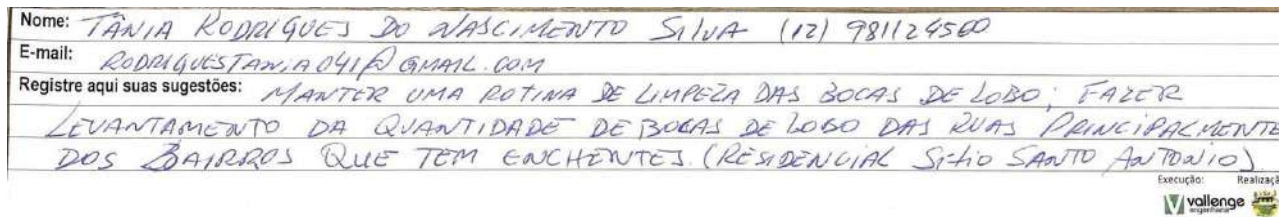 Nome: TÂNIA RODRIGUES DO NASCIMENTO SILVA (12) 981124500
E-mail: RODRIGUESTANIA041@GMAIL.COM
Registre aqui suas sugestões: MANTER UMA ROTINA DE LIMPEZA DAS BOCAS DE LOBO; FAZER
LEVANTAMENTO DA QUANTIDADE DE BOCAS DE LOBO DAS RUAS PRINCIPALMENTE
DOS BAIRROS QUE TEM ENCHENTES. (RESIDENCIAL SITIO SANTO ANTONIO)
Execução: Realizaçã
vallenge
engenharia